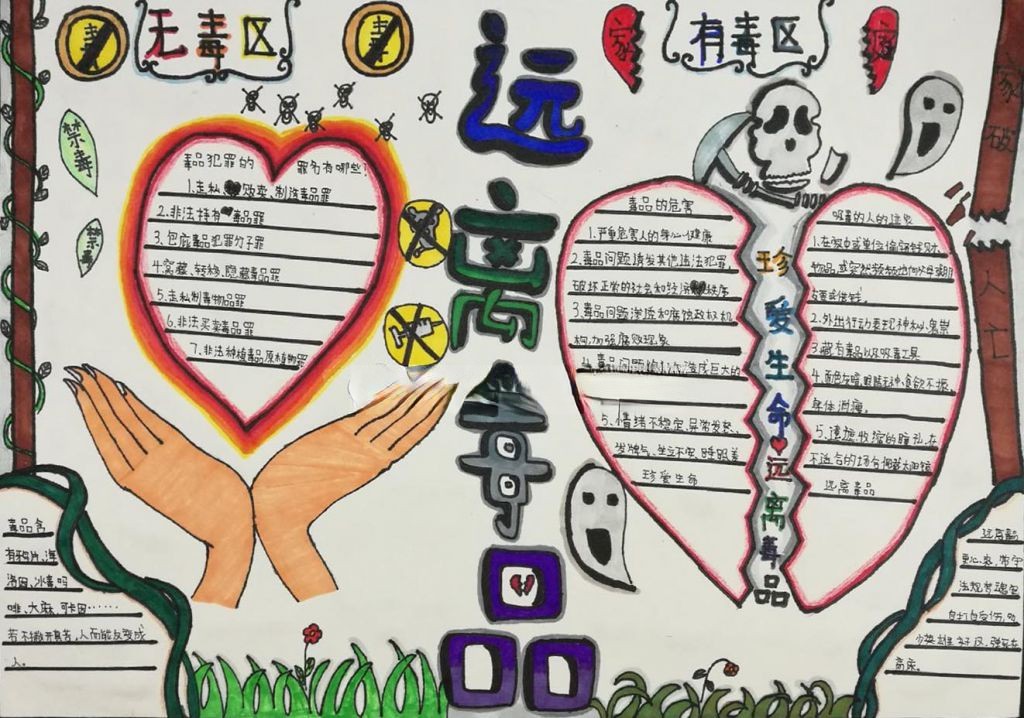 无毒区
远离毒品
有毒区
家
庭
禁毒
禁毒
毒品犯罪的 罪名有哪些!
1.走私 贩卖、制造毒品罪
2.非法持有 毒品罪
3.包庇毒品犯罪分子罪
4.窝藏、转移、隐藏毒品罪
5.走私制毒物品罪
6.非法买卖毒品罪
7.非法种植毒品原植物罪
毒品的危害
1.严重危害人的身心健康
2.毒品问题诱发其他违法犯罪,
破坏正常的社会和经济 秩序
3.毒品问题渗透和腐蚀政权机
构,加强腐败现象
4.毒品问题 造成巨大的
5.情绪不稳定,异常发怒、
发脾气、坐立不安、睡眠差
珍爱生命
珍爱生命
远离毒品
吸毒的人的
1.在家中或单位偷窃钱财、
物品,或突然频频地向父母或朋
友要或借钱。
2.外出行动表现神秘鬼祟
3.藏有毒品以及吸毒工具
4.面色灰暗、眼睛无神、食欲不振、
身体消瘦。
5.遮掩收缩的瞳孔,在
不适合的场合佩戴太阳镜
远离毒品
家破人亡
毒品含
有鸦片、海
洛因、冰毒、吗
啡、大麻、可卡因……
若不撇开毒者,人而能反变成
人。
远离